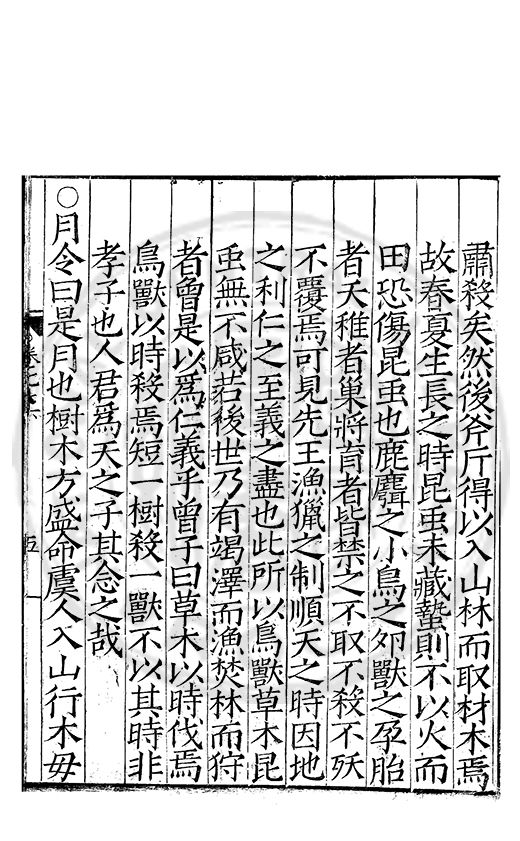 肅殺矣然後斧斤得以入山林而取材木焉
故春夏生長之時昆虫未藏蟄則不以火而
田恐傷昆虫也鹿麛之小鳥之卵獸之孕胎
者夭稚者巢將育者皆禁之不取不殺不殀
不覆焉可見先王漁獵之制順天之時因地
之利仁之至義之盡也此所以鳥獸草木昆
虫無不咸若後世乃有竭澤而漁焚林而狩
者曾是以爲仁義乎曾子曰草木以時伐焉
鳥獸以時殺焉短一樹殺一獸不以其時非
孝子也人君爲天之子其念之哉
○月令曰是月也樹木方盛命虞人入山行木毋
五